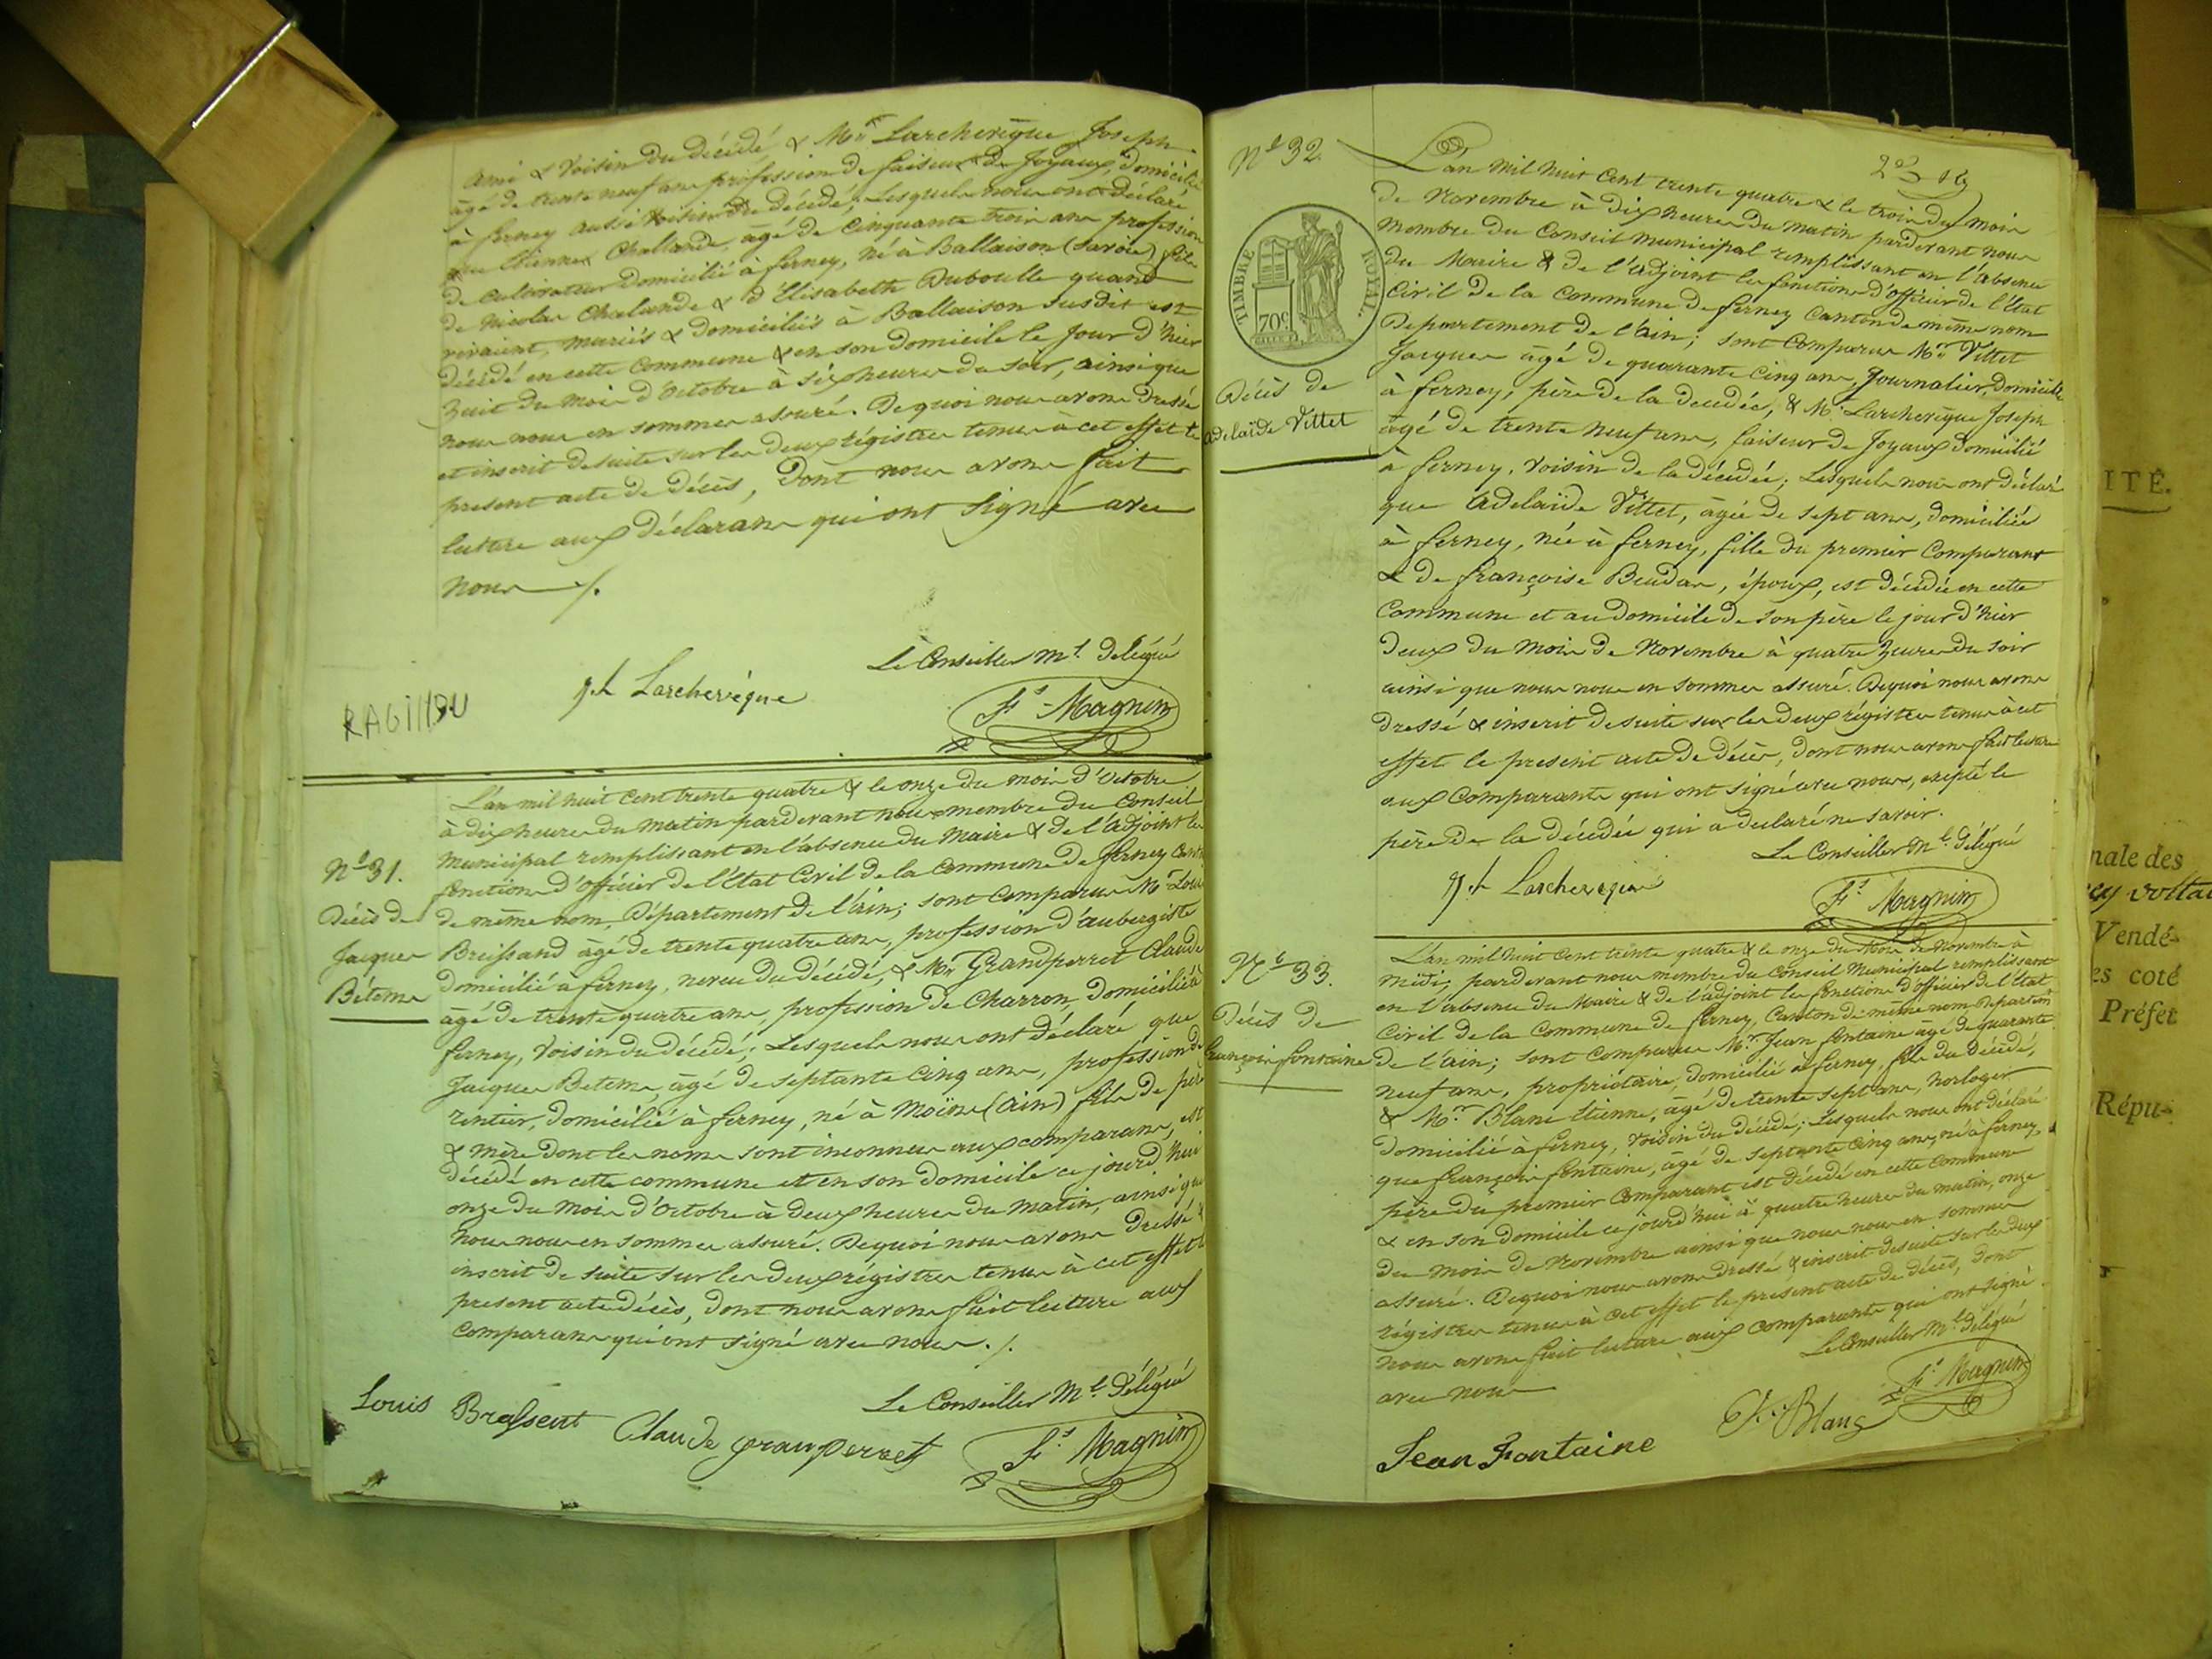 ami & voisin du décédé, & Mr. Larchevêque Joseph
âgé de trente neuf ans profession de faiseur de Joyaux, domicilié
à ferney aussi voisin du décédé; Lesquels nous ont déclaré
que Etienne Challande, âgé de Cinquante trois ans profession
de cultivateur domicilié à ferney, né à Ballaison (Savoie) fils
de Nicolas Chalande & d'Elisabeth Duboulle quand
vivaient, mariés & domiciliés à Ballaison susdit est
décédé en cette Commune & en son domicile le Jour d'hier
huit du mois d'Octobre à six heures du soir, ainsi que
nous nous en sommes assuré. De quoi nous avons dressé
et inscrit de suite sur les deux régistres tenus à cet effet le
present acte de décès, Dont nous avons fait
lecture aux déclarans qui ont signé avec
nous ./.
Le Conseiller Ml. Délégué
jh Larchevêque
Fs. Magnin
L'an mil huit cent trente quatre & le onze du mois d'Octobre
à dix heures du matin pardevant nous membre du Conseil
municipal remplissant en l'absence du Maire & de l'Adjoint les
No 31.
fonctions d'officier de l'Etat Civil de la Commune de ferney Canton
Décès de
de même nom, Département de l'ain; sont Comparus Mr. Louis
Jacques
Breissand âgé de trente quatre ans, profession d'aubergiste
Bétems
domicilié à ferney, neveu du décédé, & Mr Grandperret Claude
âgé de trente quatre ans, profession de Charron, domicilié à
ferney, voisin du décédé; Lesquels nous ont déclaré que
Jacques Betems, âgé de septante cinq ans, profession de
rentier, domicilié à ferney, né à Moëns (ain) fils de père
& mère dont les noms sont inconnus aux comparans, est
décédé en cette commune et en son domicile ce jourd'hui
onze du mois d'Octobre à deux heures du matin, ainsi que
nous nous en sommes assuré. De quoi nous avons dressé &
inscrit de suite sur les deux régistres tenus à cet effet le
present acte décès, dont nous avons fait lecture aux
comparans qui ont signé avec nous ./.
Le Conseiller Ml. Délégué
Louis Brassent Claude granperret
Fs. Magnin
No 32.
L'an mil huit Cent trente quatre & le trois du mois
de Novembre à dix heures du matin pardevant nous
membre du Conseil municipal remplissant en l'absence
du Maire & de l'adjoint les fonctions d'officier de l'Etat
Civil de la Commune de ferney Canton de même nom
Département de l'ain; sont Comparus Mr. Vittet
Jacques âgé de quarante cinq ans, Journalier, domicilié
TIMBRE ROYAL.
70c
Décès de
Adelaïde Vittet
à ferney, père de la décédée, & Mr. Larchevêque Joseph
âgé de trente neuf ans, faiseur de Joyaux domicilié
à ferney, voisin de la décédée; Lesquels nous ont déclaré
que Adelaïde Vittet, âgée de sept ans, domiciliée
à ferney, née à ferney, fille du premier Comparant
& de françoise Beudan, époux, est décédée en cette
Commune et au domicile de son père le jour d'hier
deux du mois de Novembre à quatre heures du soir
ainsi que nous nous en sommes assuré. De quoi nous avons
dressé & inscrit de suite sur les deux régistres tenus à cet
effet le present acte de décès, dont nous avons fait lecture
aux Comparants qui ont signé avec nous, exepté le
père de la décédée qui a declaré ne savoir.
Le Conseiller Ml. Délégué
jh Larchevêque
Fs. Magnin
No 33.
Décès de
françois fontaine
L'an mil huit cent trente quatre & le onze du Mois de Novembre à
midi, pardevant nous membre du Conseil Municipal remplissant
en l'absence du Maire & de l'adjoint les fonctions d'officier de l'Etat
Civil de la Commune de ferney, Canton de même nom Departemt
de l'ain; sont Comparus Mr. Jean fontaine âgé de quarante
neuf ans, propriétaire, domicilié à ferney, fils du décédé,
& Mr. Blanc Etienne, âgé de trente sept ans, horloger
domicilié à ferney, voisin du décédé; Lesquels nous ont déclaré
que françois fontaine, âgé de septante cinq ans, né à ferney,
père du premier Comparant est décédé en cette Commune
& en son domicile ce jourd'hui à quatre heures du matin, onze
du mois de Novembre ainsi que nous nous en sommes
assuré. De quoi nous avons dressé & inscrit de suite sur les deux
régistres tenus à cet effet le présent acte de décès, dont
nous avons fait lecture aux comparants qui ont signé
avec nous
Le Conseiller Ml. Délégué
Fs. Magnin
E. Blanc
Jean Fontaine
ITÉ.
nale des
ey voltai
Vendé-
es coté
Préfet
Répu-